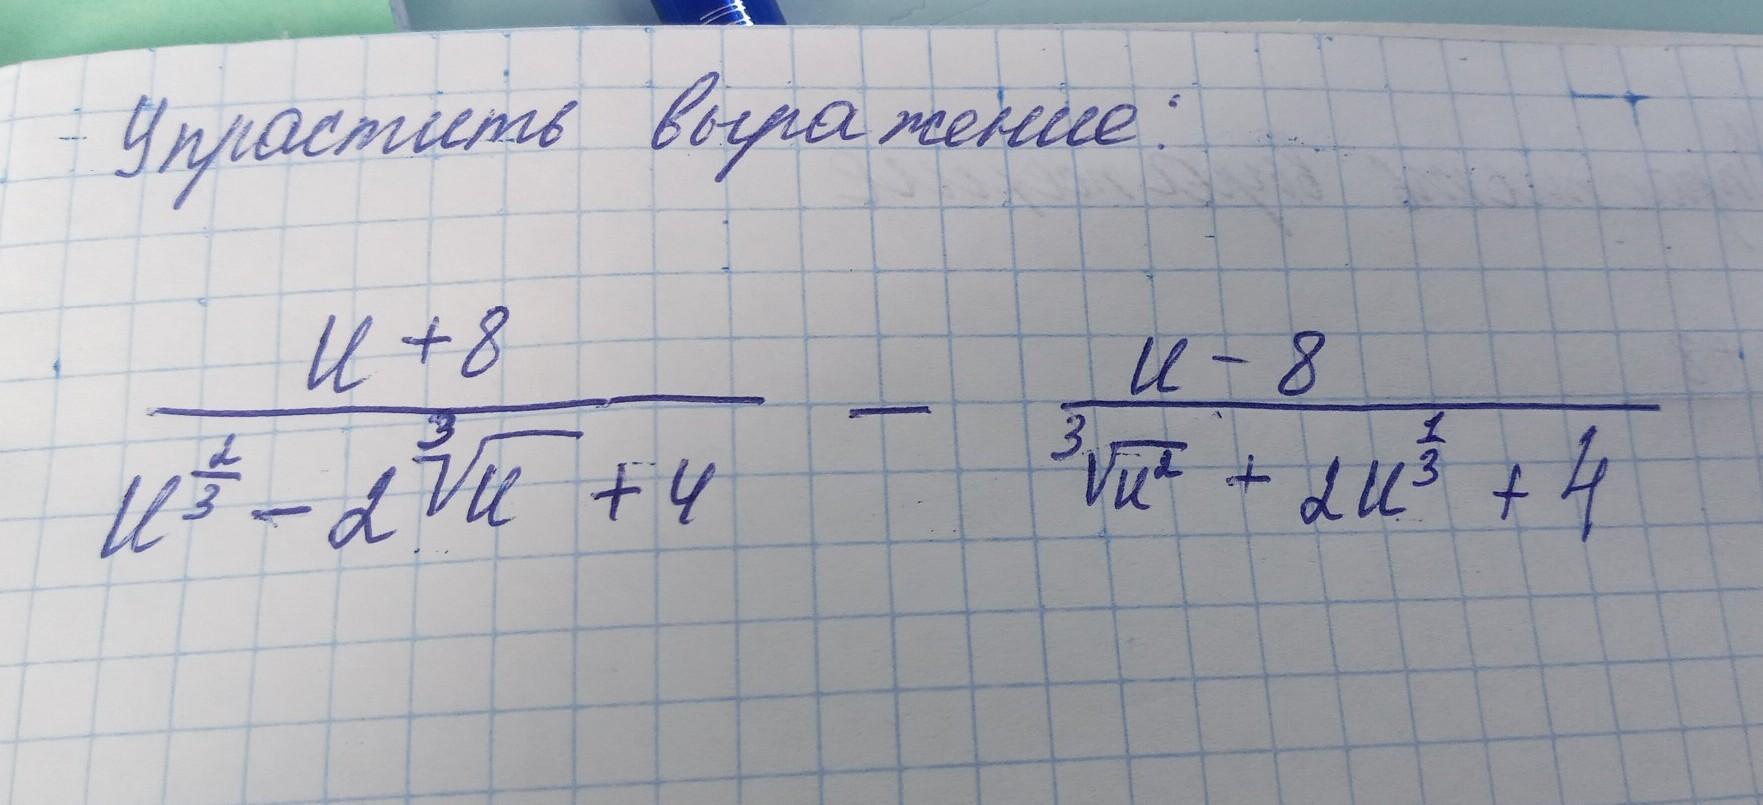 Упрастить выражение:
u + 8 / u^(2/3) - 2∛u + 4 — u - 8 / ∛u² + 2u^(1/3) + 4